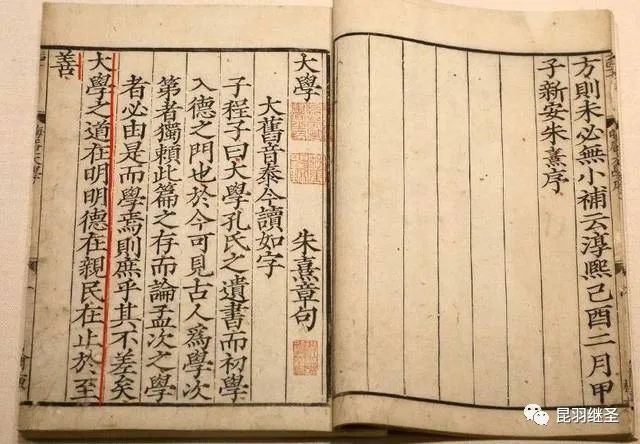 方則未必無小補云淳熙己酉二月甲
子新安朱熹序
大學
朱熹章句
大舊音泰今讀如字
子程子曰大學孔氏之遺書而初學
入德之門也於今可見古人爲學次
第者獨賴此篇之存而論孟次之學
者必由是而學焉則庶乎其不差矣
大學之道在明明德在親民在止於至
善
昆羽继圣